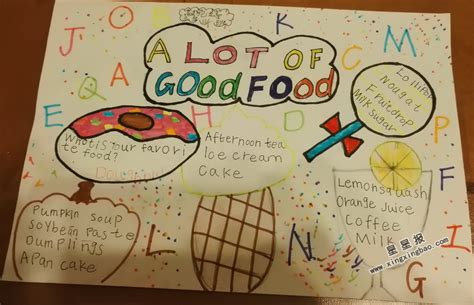 A LOT OF
GOOD FOOD
Lollipop
Nougat
Fruitdrop
Milk sugar
What is your favori
te food?
Doughnut
Afternoon tea
Ice cream
cake
Lemon squash
Orange Juice
Coffee
Milk
Pumpkin soup
Soybein paste
Dumplings
A Pan cake
J
O
B
K
C
M
E
Q
A
H
P
F
D
L
N
G
I
星星报
www.xingxingbao.com